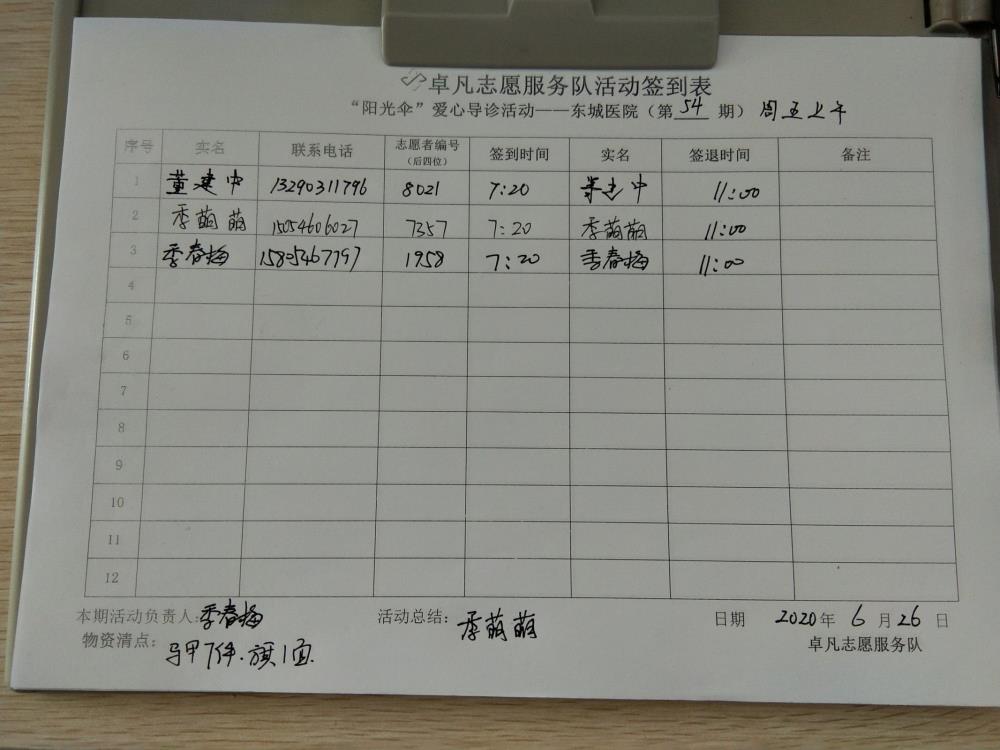 卓凡志愿服务队活动签到表
“阳光伞”爱心导诊活动——东城医院（第54期）周五上午
序号 实名 联系电话 志愿者编号（后四位） 签到时间 实名 签退时间 备注
1 董建中 13290311796 8021 7:20 董建中 11:00
2 季萌萌 15054606027 7357 7:20 季萌萌 11:00
3 季春梅 15805467797 1958 7:20 季春梅 11:00
4
5
6
7
8
9
10
11
12
本期活动负责人:季春梅 活动总结：季萌萌 日期 2020年6月26日
物资清点：马甲7件.旗1面. 卓凡志愿服务队